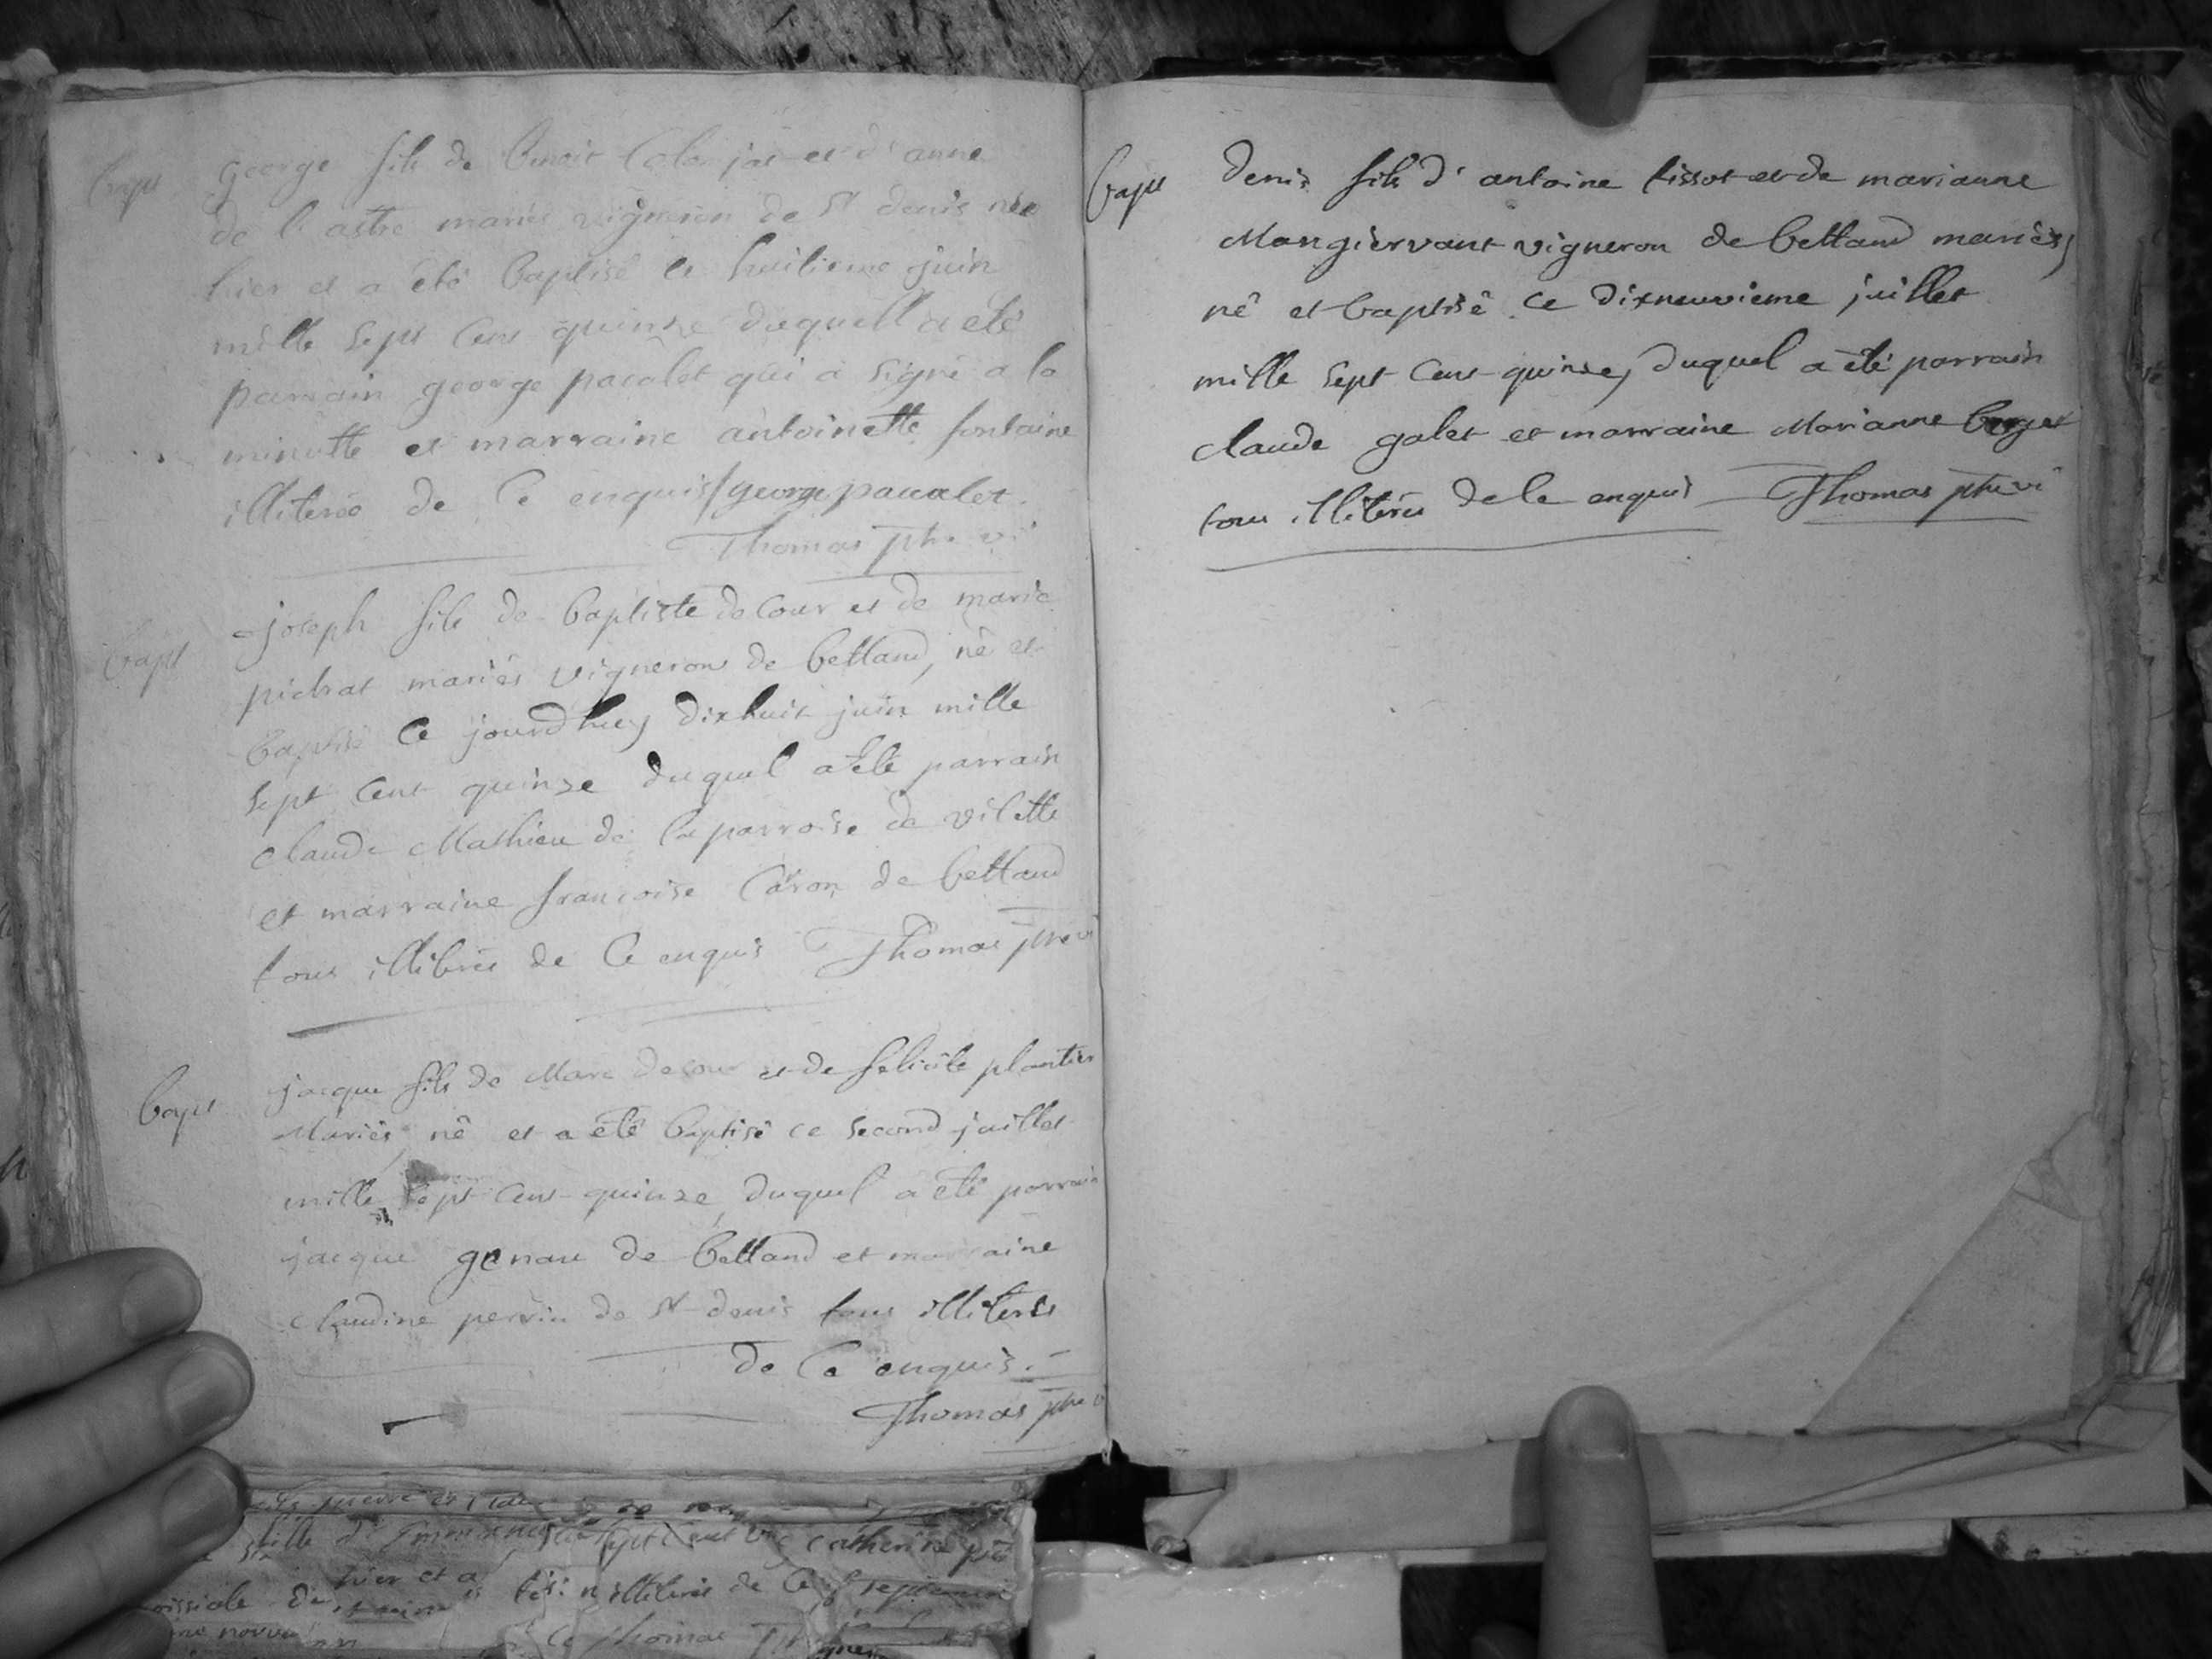 bapt
george fils de benoit et d'anne
de l'astre mariés vigneron de St denis née
hier et a été baptisé le huitieme juin
mille sept cent quinze duquell a été
parrain george pacalet qui a signé a la
minutte et marraine antoinette fontaine
illiterée de ce enquis / george pacalet
Thomas ptre vi
bapt
joseph fils de baptiste decour et de marie
pichat mariés vignerons de bettand, né et
baptisé ce jourdhuy dixhuit juin mille
sept cent quinze duquel a été parrain
claude Mathieu de la parroise de vilette
et marraine francoise Caron de bettand
tous illiterés de ce enquis Thomas ptre vi
bapt
jacque fils de Marc decour et de felicite plantier
Mariés né et a été baptisé ce second juillet
mille sept cent quinze, duquel a été parrain
jacque de bettand et marraine
claudine perrin de St denis tous illiterés
de ce enquis.
Thomas ptre v
bapt
denis fils d'antoine tissot et de marianne
Mongiervant vigneron de bettand mariés,
né et baptisé ce dixneuvieme juillet
mille sept cent quinze, duquel a été parrain
claude galet et marraine Marianne berget
tous illiterés de ce enquis Thomas ptre vi
fille sept cent catherine
hier et a illiterés de ce
ce thomas